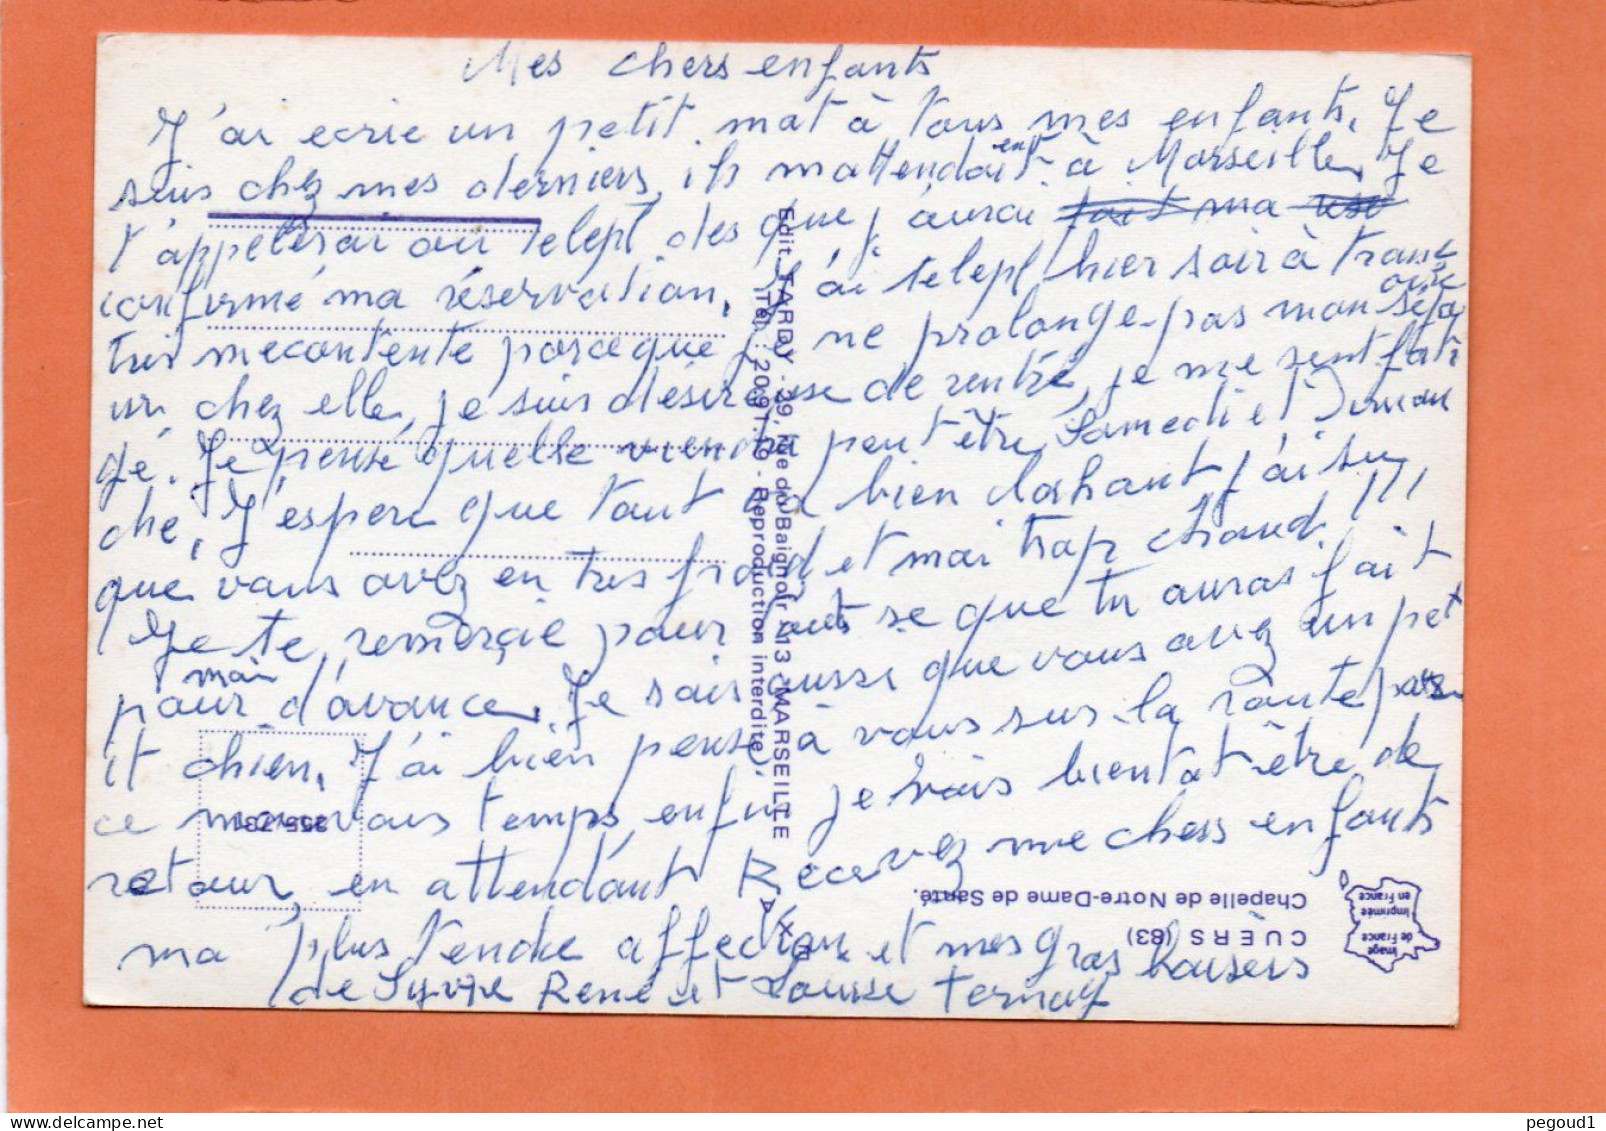 Mes chers enfants
J'ai ecrie un petit mot à tous mes enfants. Je
suis chez mes derniers, ils m'attendaient à Marseille. Je
t'appellerai au telepl. des que j'aurai fait ma
confirmé ma réservation. J'ai telepl. hier soir à
très mecontente parceque je ne prolonge pas mon séjo
ur chez elle, je suis désireuse de rentré, je me sent fati
gé. Je pense quelle viendra peut être Samedi et Diman
che, J'espere que tout va bien j'ai su
que vous avez eu très froid et moi trop chaud. !!!
Je te remerçie pour tout se que tu auras fait
pour moi d'avance. Je sais aussi que vous avez un pet
it chien. J'ai bien pensé à vous sur la route par
ce mauvais temps, enfin je vais bientôt être de
retour, en attendant Recevez mes chers enfants
ma plus tendre affection et mes gros baisers
de Sylvie René et Louise Ternay
Edit. TARDY - 39, Rue du Baignoir - 13 - MARSEILLE
(Tél. : 20.91. - Reproduction interdite)
CUERS (83)
Chapelle de Notre-Dame de Santé.
Image
de France
Imprimée
en France
pegoud1